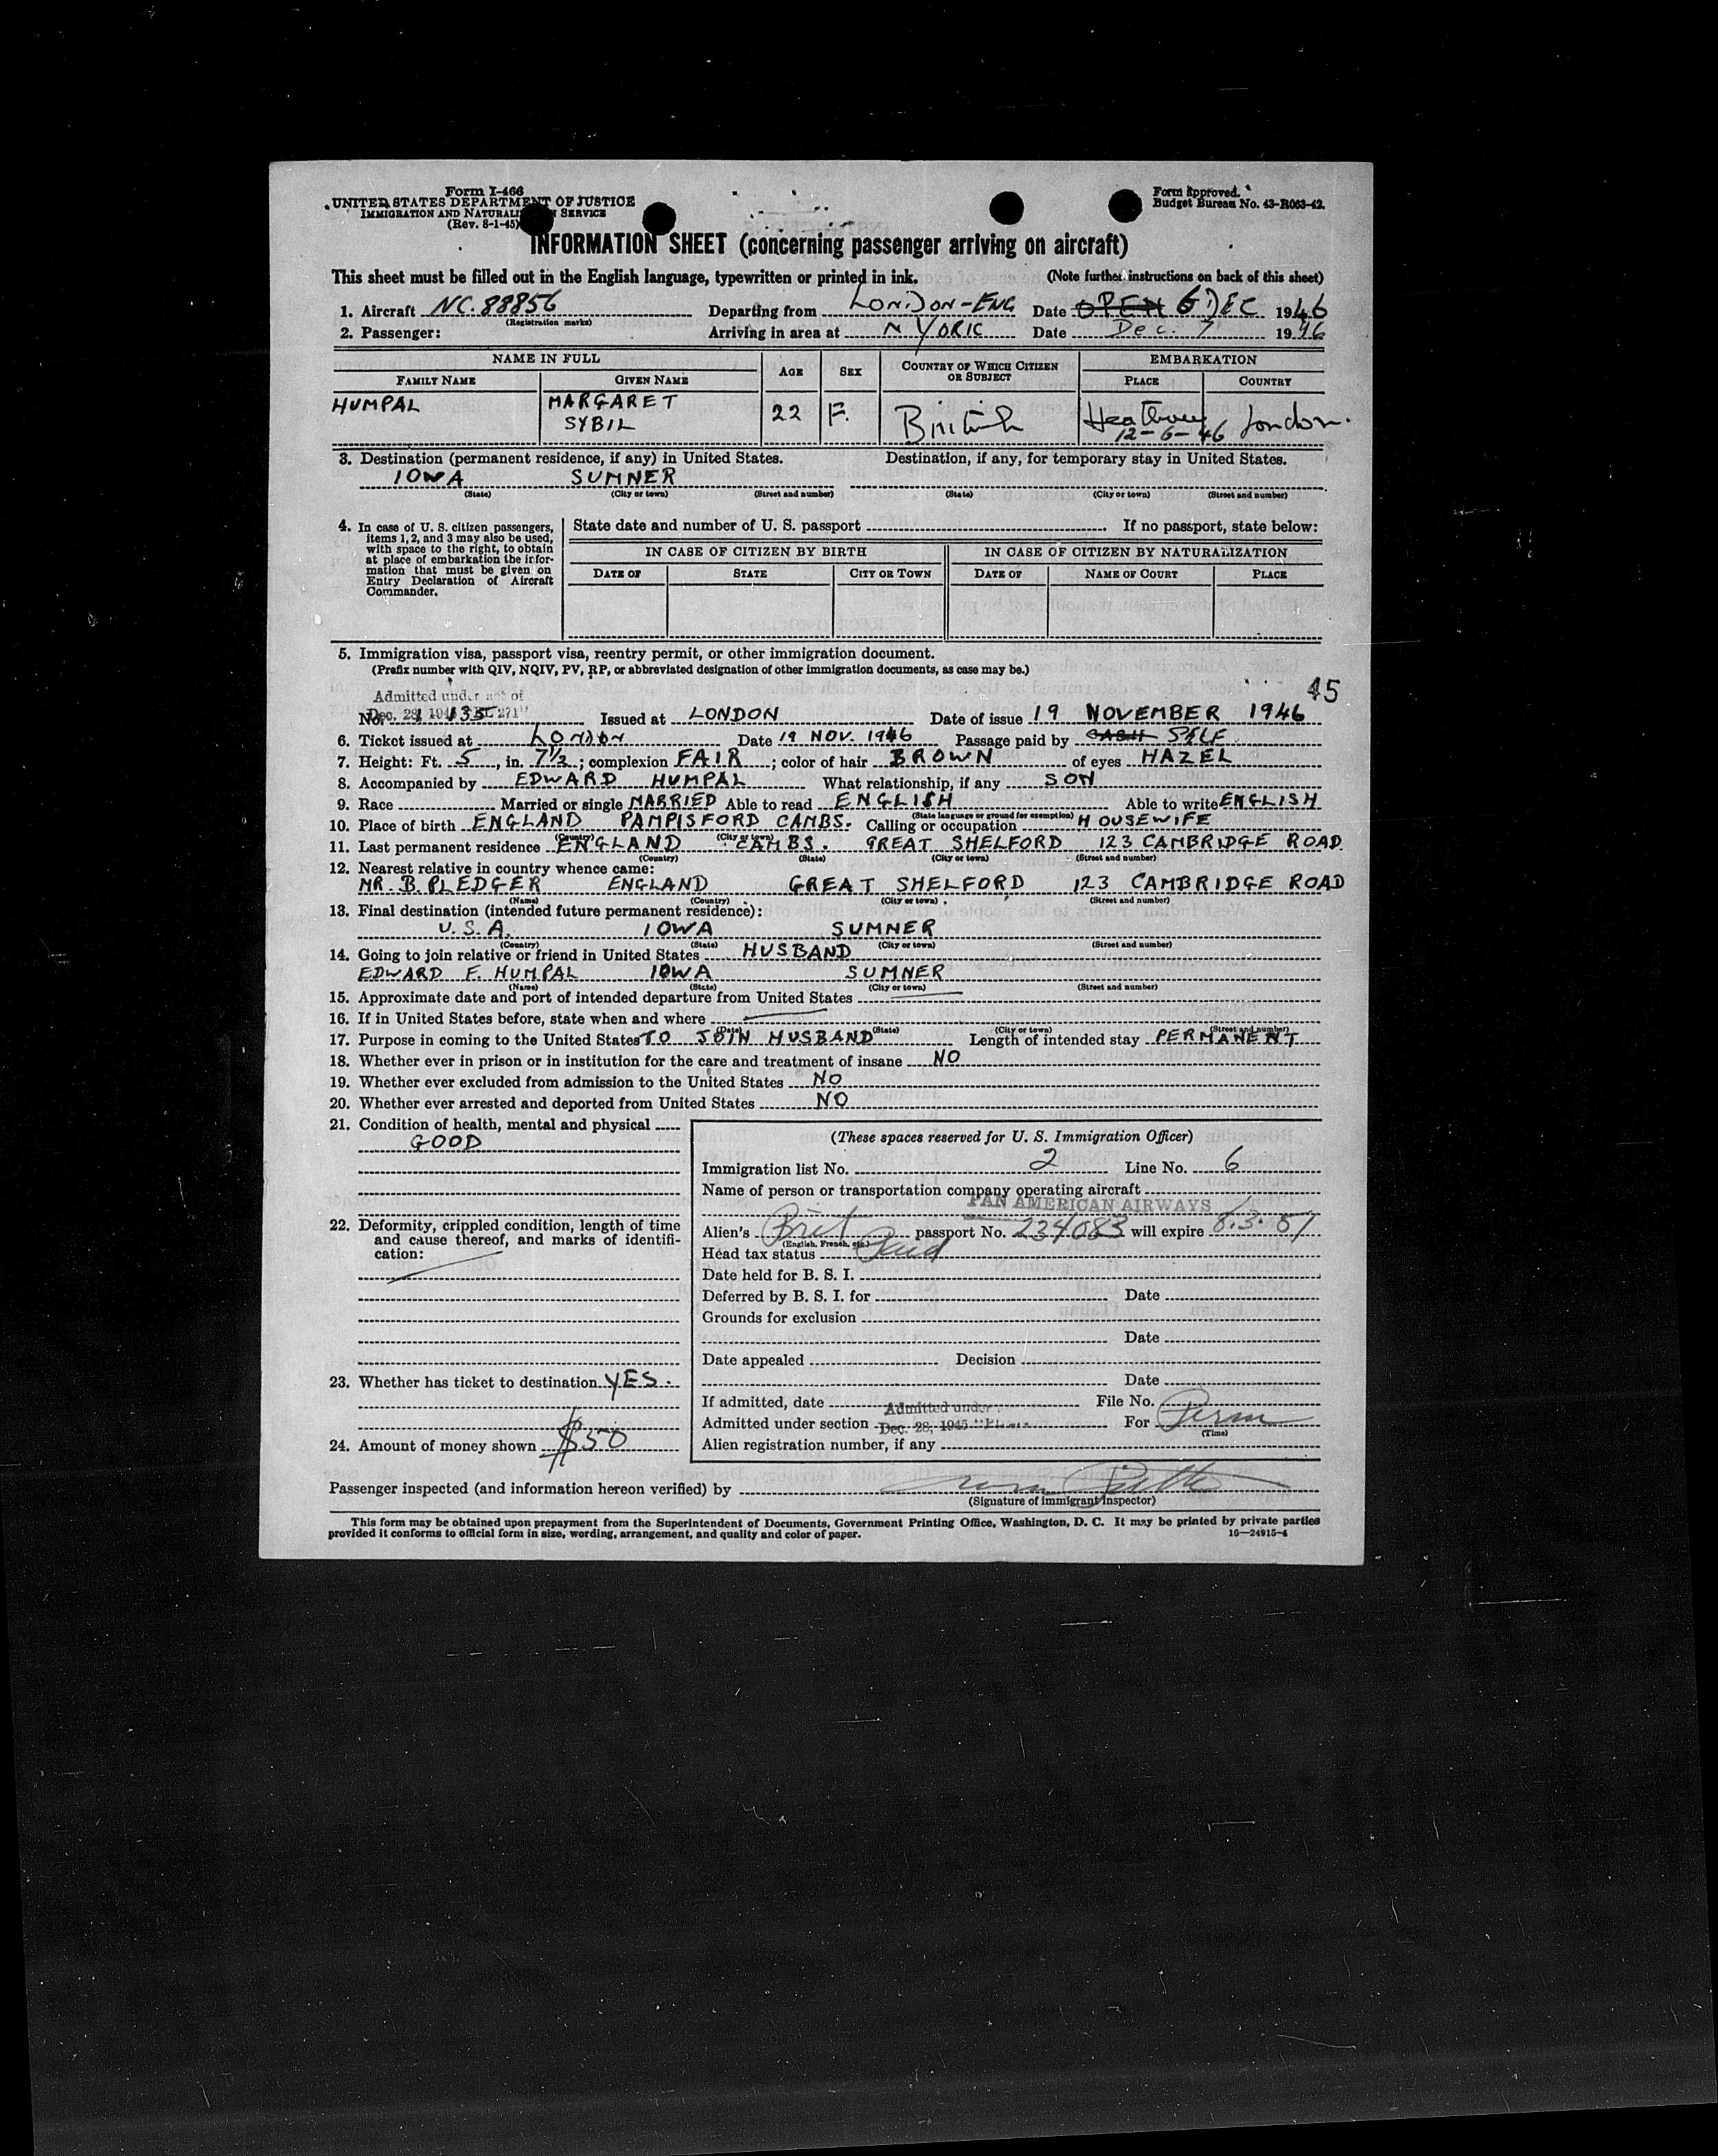 Form I-466
UNITED STATES DEPARTMENT OF JUSTICE
IMMIGRATION AND NATURALI SERVICE
(Rev. 8-1-45)
Form approved.
Budget Bureau No. 43-R063-42.
INFORMATION SHEET (concerning passenger arriving on aircraft)
This sheet must be filled out in the English language, typewritten or printed in ink. (Note further instructions on back of this sheet)
1. Aircraft NC. 88856 Departing from LONDON-ENG Date OPEN 6 DEC 1946
(Registration marks)
2. Passenger: Arriving in area at N YORK Date Dec. 7 1946
NAME IN FULL AGE SEX COUNTRY OF WHICH CITIZEN OR SUBJECT EMBARKATION
FAMILY NAME GIVEN NAME PLACE COUNTRY
HUMPAL MARGARET SYBIL 22 F. British Heathrow 12-6-46 London.
3. Destination (permanent residence, if any) in United States. Destination, if any, for temporary stay in United States.
IOWA SUMNER
(State) (City or town) (Street and number) (State) (City or town) (Street and number)
4. In case of U. S. citizen passengers, items 1, 2, and 3 may also be used, with space to the right, to obtain at place of embarkation the information that must be given on Entry Declaration of Aircraft Commander.
State date and number of U. S. passport If no passport, state below:
IN CASE OF CITIZEN BY BIRTH IN CASE OF CITIZEN BY NATURALIZATION
DATE OF STATE CITY OR TOWN DATE OF NAME OF COURT PLACE
5. Immigration visa, passport visa, reentry permit, or other immigration document.
(Prefix number with QIV, NQIV, PV, RP, or abbreviated designation of other immigration documents, as case may be.)
45
Admitted under act of
No. Issued at LONDON Date of issue 19 NOVEMBER 1946
6. Ticket issued at LONDON Date 19 NOV. 1946 Passage paid by CASH SELF
7. Height: Ft. 5, in. 7½; complexion FAIR; color of hair BROWN of eyes HAZEL
8. Accompanied by EDWARD HUMPAL What relationship, if any SON
9. Race Married or single MARRIED Able to read ENGLISH Able to write ENGLISH
(State language or ground for exemption)
10. Place of birth ENGLAND PAMPISFORD CAMBS. Calling or occupation HOUSEWIFE
(Country) (City or town)
11. Last permanent residence ENGLAND CAMBS. GREAT SHELFORD 123 CAMBRIDGE ROAD.
(Country) (State) (City or town) (Street and number)
12. Nearest relative in country whence came:
MR. B. PLEDGER ENGLAND GREAT SHELFORD 123 CAMBRIDGE ROAD
(Name) (Country) (City or town) (Street and number)
13. Final destination (intended future permanent residence):
U.S.A. IOWA SUMNER
(Country) (State) (City or town) (Street and number)
14. Going to join relative or friend in United States HUSBAND
EDWARD F. HUMPAL IOWA SUMNER
(Name) (State) (City or town) (Street and number)
15. Approximate date and port of intended departure from United States
16. If in United States before, state when and where
(Date) (State) (City or town) (Street and number)
17. Purpose in coming to the United States TO JOIN HUSBAND Length of intended stay PERMANENT
18. Whether ever in prison or in institution for the care and treatment of insane NO
19. Whether ever excluded from admission to the United States NO
20. Whether ever arrested and deported from United States NO
21. Condition of health, mental and physical
GOOD
22. Deformity, crippled condition, length of time and cause thereof, and marks of identification:
23. Whether has ticket to destination YES.
24. Amount of money shown $50
(These spaces reserved for U. S. Immigration Officer)
Immigration list No. 2 Line No. 6
Name of person or transportation company operating aircraft
PAN AMERICAN AIRWAYS
Alien's Brit passport No. 234083 will expire 6.3.51
(English, French, etc.)
Head tax status Paid
Date held for B. S. I.
Deferred by B. S. I. for Date
Grounds for exclusion
Date
Date appealed Decision
Date
If admitted, date File No.
Admitted under
Admitted under section Dec. 28, 1945 For Perm
(Time)
Alien registration number, if any
Passenger inspected (and information hereon verified) by
(Signature of immigrant inspector)
This form may be obtained upon prepayment from the Superintendent of Documents, Government Printing Office, Washington, D. C. It may be printed by private parties
provided it conforms to official form in size, wording, arrangement, and quality and color of paper. 16—24915-4